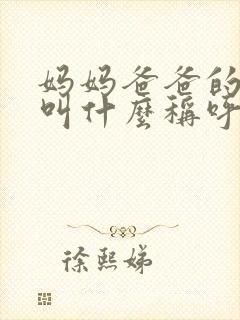 妈妈爸爸的
叫什麼稱呼
徐熙娣